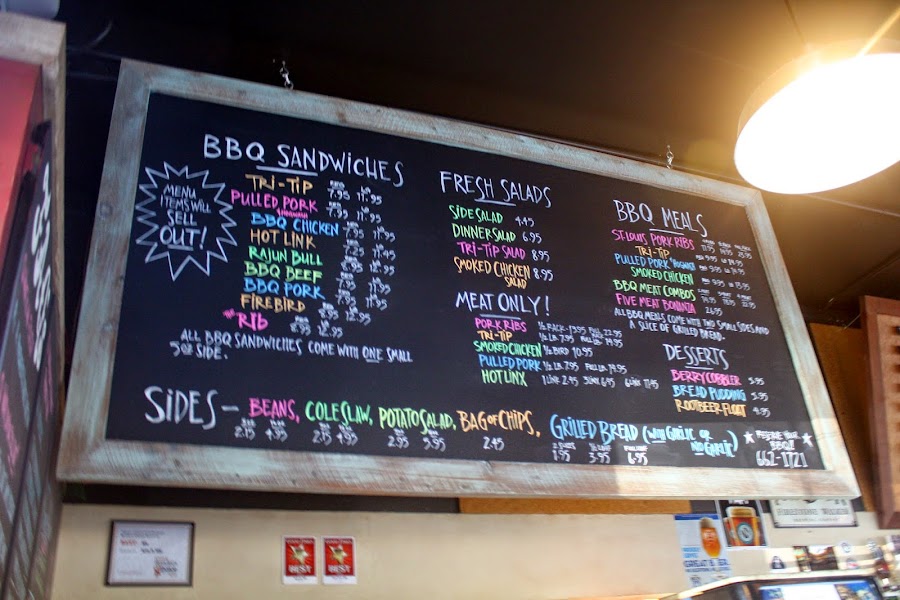 BBQ SANDWICHES
MENU
ITEMS WILL
SELL
OUT!
TRI-TIP 7.95 11.95
PULLED PORK 7.95 11.95
BBQ CHICKEN
HOT LINK
RAJUN BULL
BBQ BEEF
BBQ PORK
FIREBIRD
*RIB
ALL BBQ SANDWICHES COME WITH ONE SMALL
5oz SIDE.
FRESH SALADS
SIDE SALAD 4.45
DINNER SALAD 6.95
TRI-TIP SALAD 8.95
SMOKED CHICKEN 8.95
SALAD
MEAT ONLY!
PORK RIBS ½ RACK-13.95 FULL 22.95
TRI-TIP ½ LB. 7.95 FULL LB. 14.95
SMOKED CHICKEN ½ BIRD 10.95
PULLED PORK ½ LB. 7.95 FULL LB. 14.95
HOT LINX 1 LINK 2.45
BBQ MEALS
ST. LOUIS PORK RIBS
TRI-TIP
PULLED PORK
SMOKED CHICKEN
BBQ MEAT COMBOS
FIVE MEAT BONANZA 26.95
ALL BBQ MEALS COME WITH TWO SMALL SIDES AND
A SLICE OF GRILLED BREAD.
DESSERTS
BERRY COBBLER 5.95
BREAD PUDDING 5.95
ROOTBEER FLOAT 4.95
SIDES- BEANS, COLE SLAW, POTATO SALAD, BAG OF CHIPS, GRILLED BREAD (WITH GARLIC OR
NO GARLIC)
2.75 4.95 2.75 4.95 2.95 5.95 2.45 1.95 3.95 6.95
RESERVE YOUR
BBQ!
662-1721
FIRESTONE WALKER
BEST
BEST
GREAT BEER